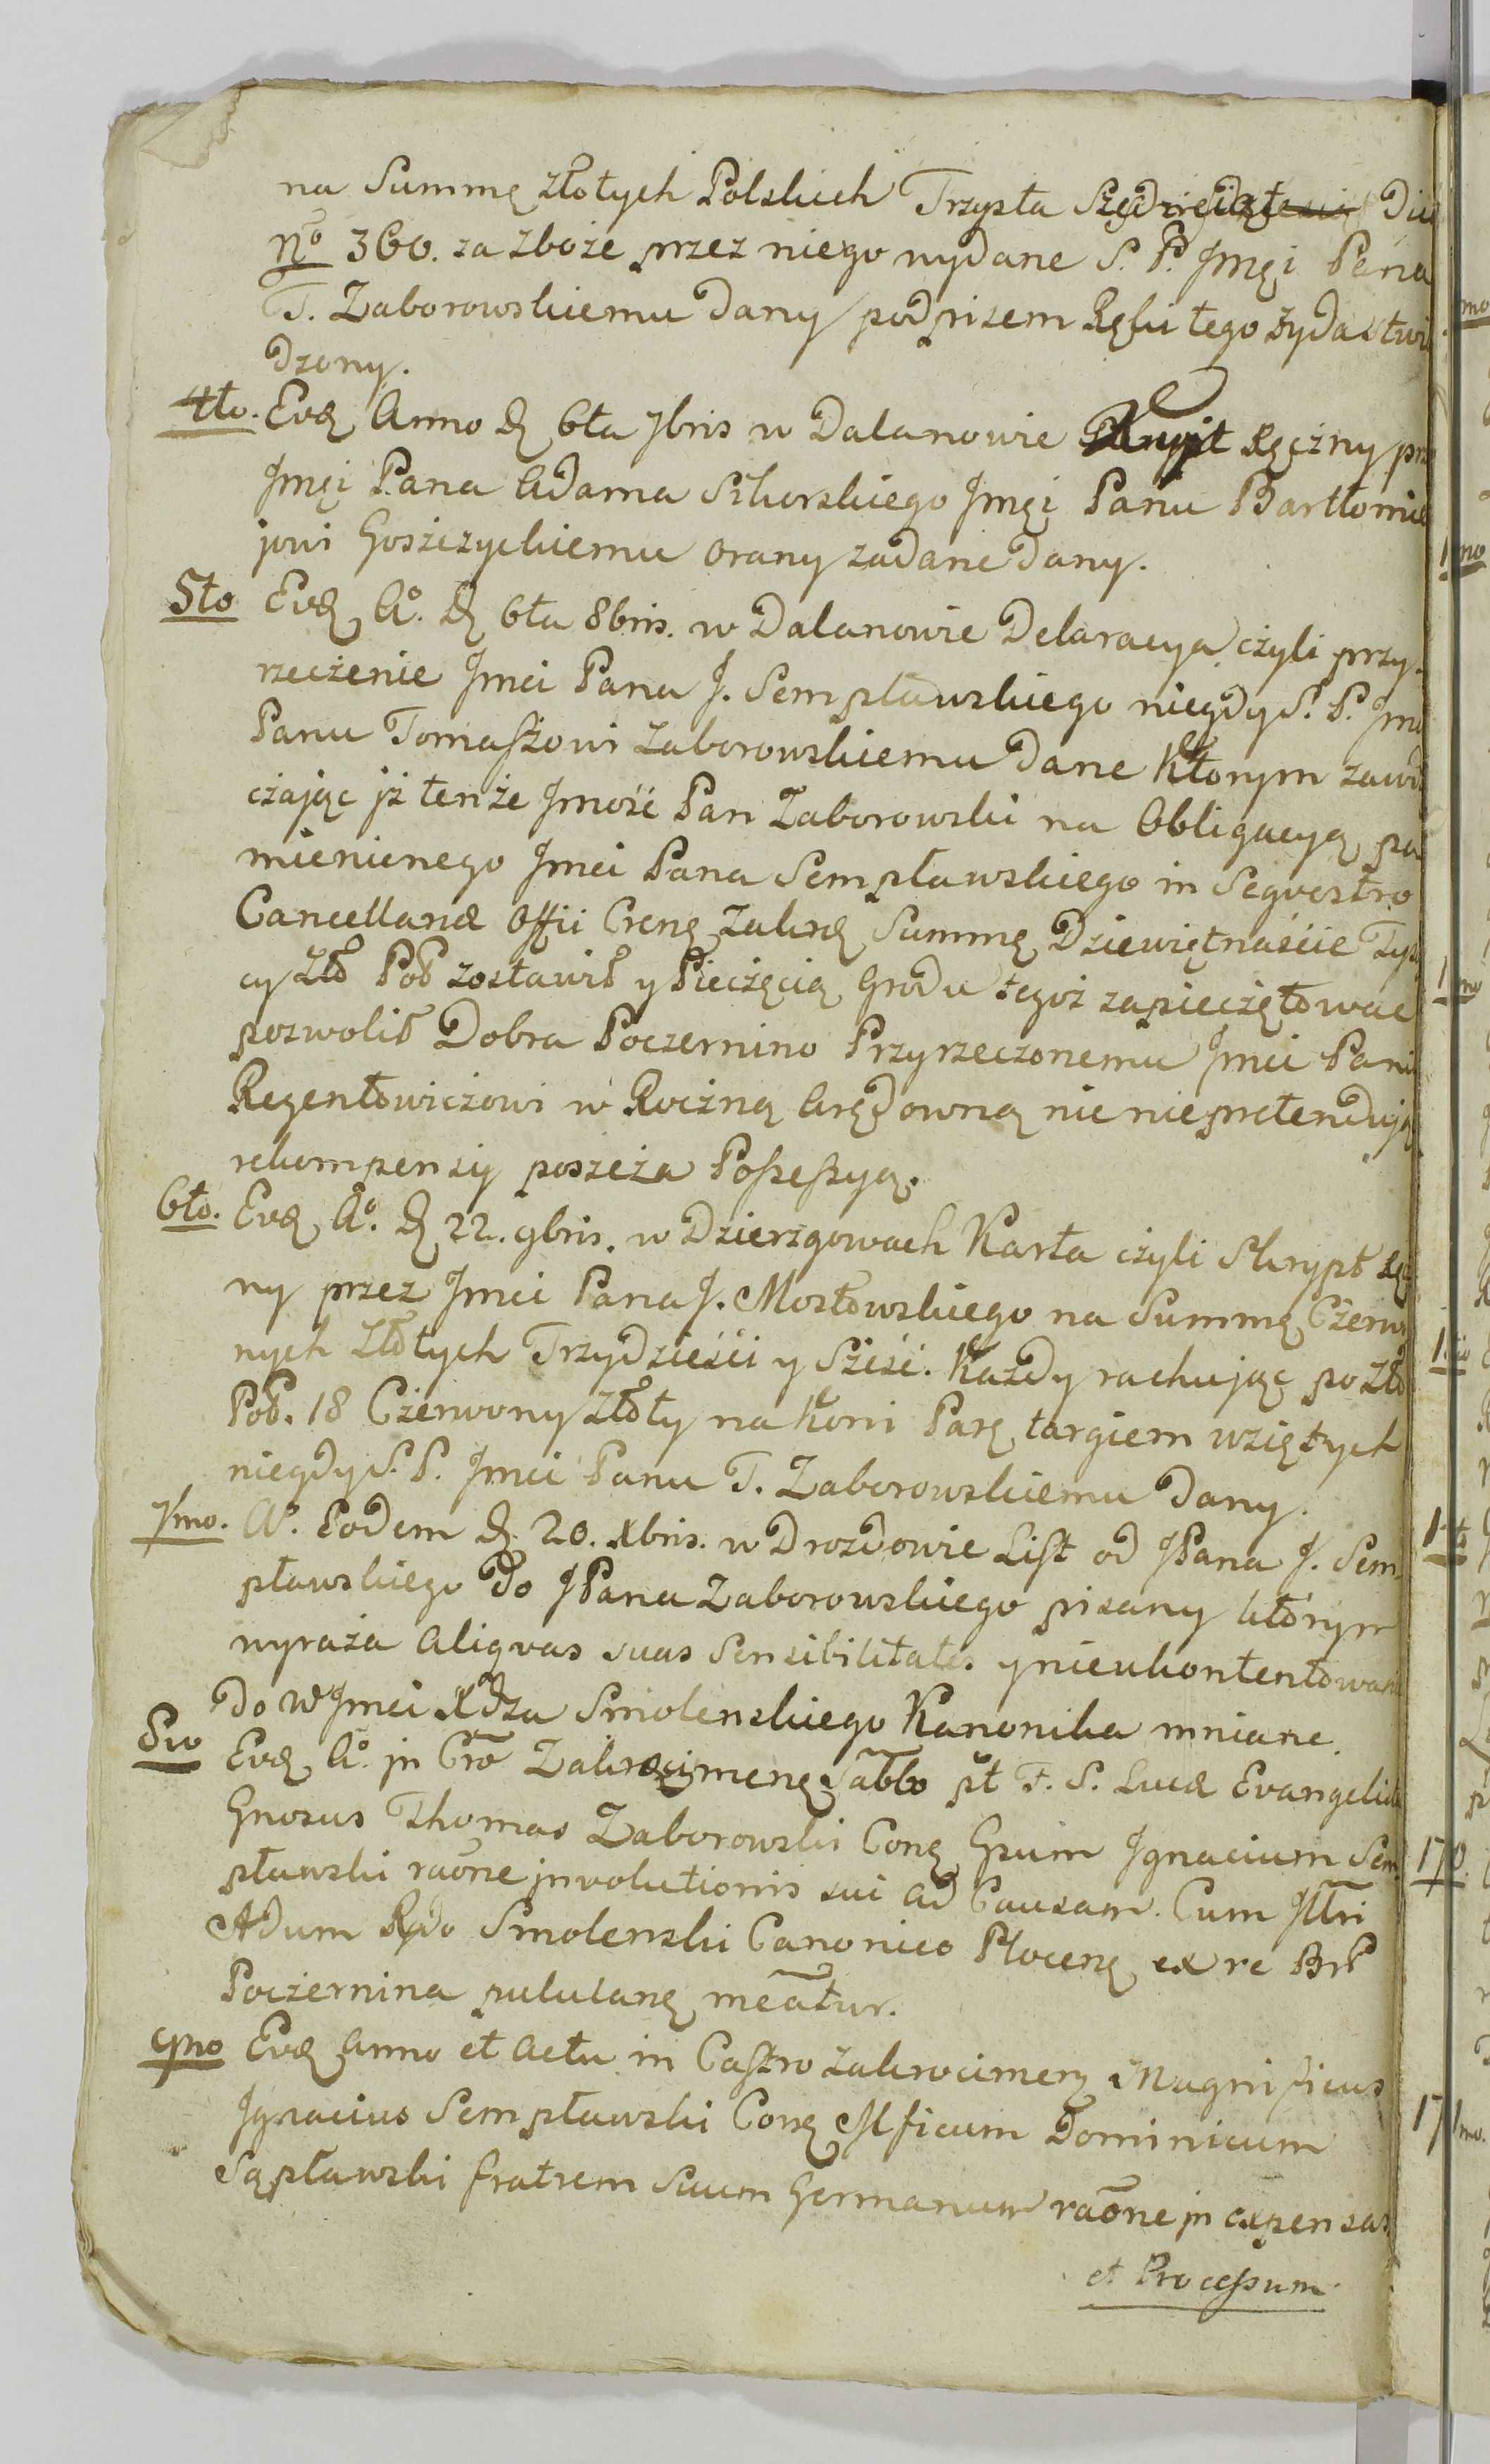 na Summę złotych Polskich Trzysta Dic
No 360. za zboże przez niego wydane S. P. Jmęi Pana
T. Zaborowskiemu dany podpisem Ręku tego żyda stwi
dzony.
4to. Eod Anno D 6ta 7bris w Dalanowie Skrypt Ręczny prz
Jmęi Pana Adama Sikorskiego Jmęi Panu Bartłomie
jowi Goszczyckiemu Orany zadane dany.
5to Eod Ao. D 6ta 8bris. w Dalanowie Delaracya czyli przy-
rzeczenie Jmci Pana J. Sempławskiego niegdy S. P. Jmc
Panu Tomaszowi Zaborowskiemu dane którym zawd
czając jż tenże Jmość Pan Zaborowski na Obligacyą po
mienienego Jmci Pana Sempławskiego in Seqvestro
Cancellariæ Offii Crenę Zakrę Summę Dziewiętnaście Tys
cy Zło Pol zostawił y Pieczęcią Grodu tegoż zapieczętować
pozwolił Dobra Poczernino Przyrzeczonemu Jmci Panu
Regentowiczowi w Roczną Arędowną nic niepretendują
rekompensy poszcza Possessyą.
6to. Eod Ao. D 22. 9bris. w Dzierzgowach Karta czyli Skrypt Ręż
ny przez Jmci Pana J. Mostowskiego na Summę Czerw
nych Złotych Trzydzieści y Sześć. Każdy rachując po Zło
Pol. 18 Czerwony Złoty na Koni Parę targiem wziętych
niegdy S. P. Jmci Panu T. Zaborowskiemu dany.
7mo. Ao. Eodem D. 20. Xbris. w Drozdowie List od JPana J. Sem
pławskiego do JPana Zaborowskiego pisany którym
wyraża aliqvas suas Sensibilitates y nieukontentowani
do WJmci Xdza Smolenskiego Kanonika mniane.
8vo Eod Ao. jn Cro Zakroczimenę Sabbo pt F. S. Lucæ Evangelist
Gnosus Thomas Zaborowski Conę Gsum Jgnacium Sem
pławski raone jnvolutionis sui ad Causam. Cum Jllri
Adum Rdo Smolenski Canonico Płocenę ex re Brl
Poczernina pululanę meatur.
9no Eod Anno et Actu in Castro Zakrocimenę Magnificus
Jgnacius Sempławski Conę Mficum Dominicum
Sąpławski fratrem Suum Germanum raone jn expensas
et Processum